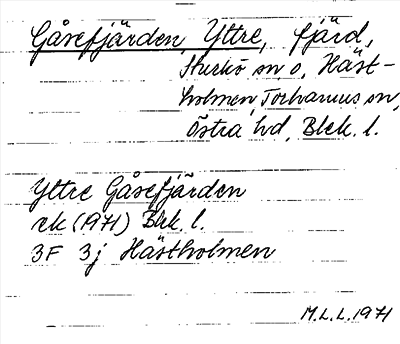 Gåsefjärden, Yttre, fjärd,
Sturkö sn o. Häst-
holmen, Torhamns sn,
Östra hd, Blek. l.
Yttre Gåsefjärden
rk (1971) Blek. l.
3F 3j Hästholmen
M.L.L. 1971